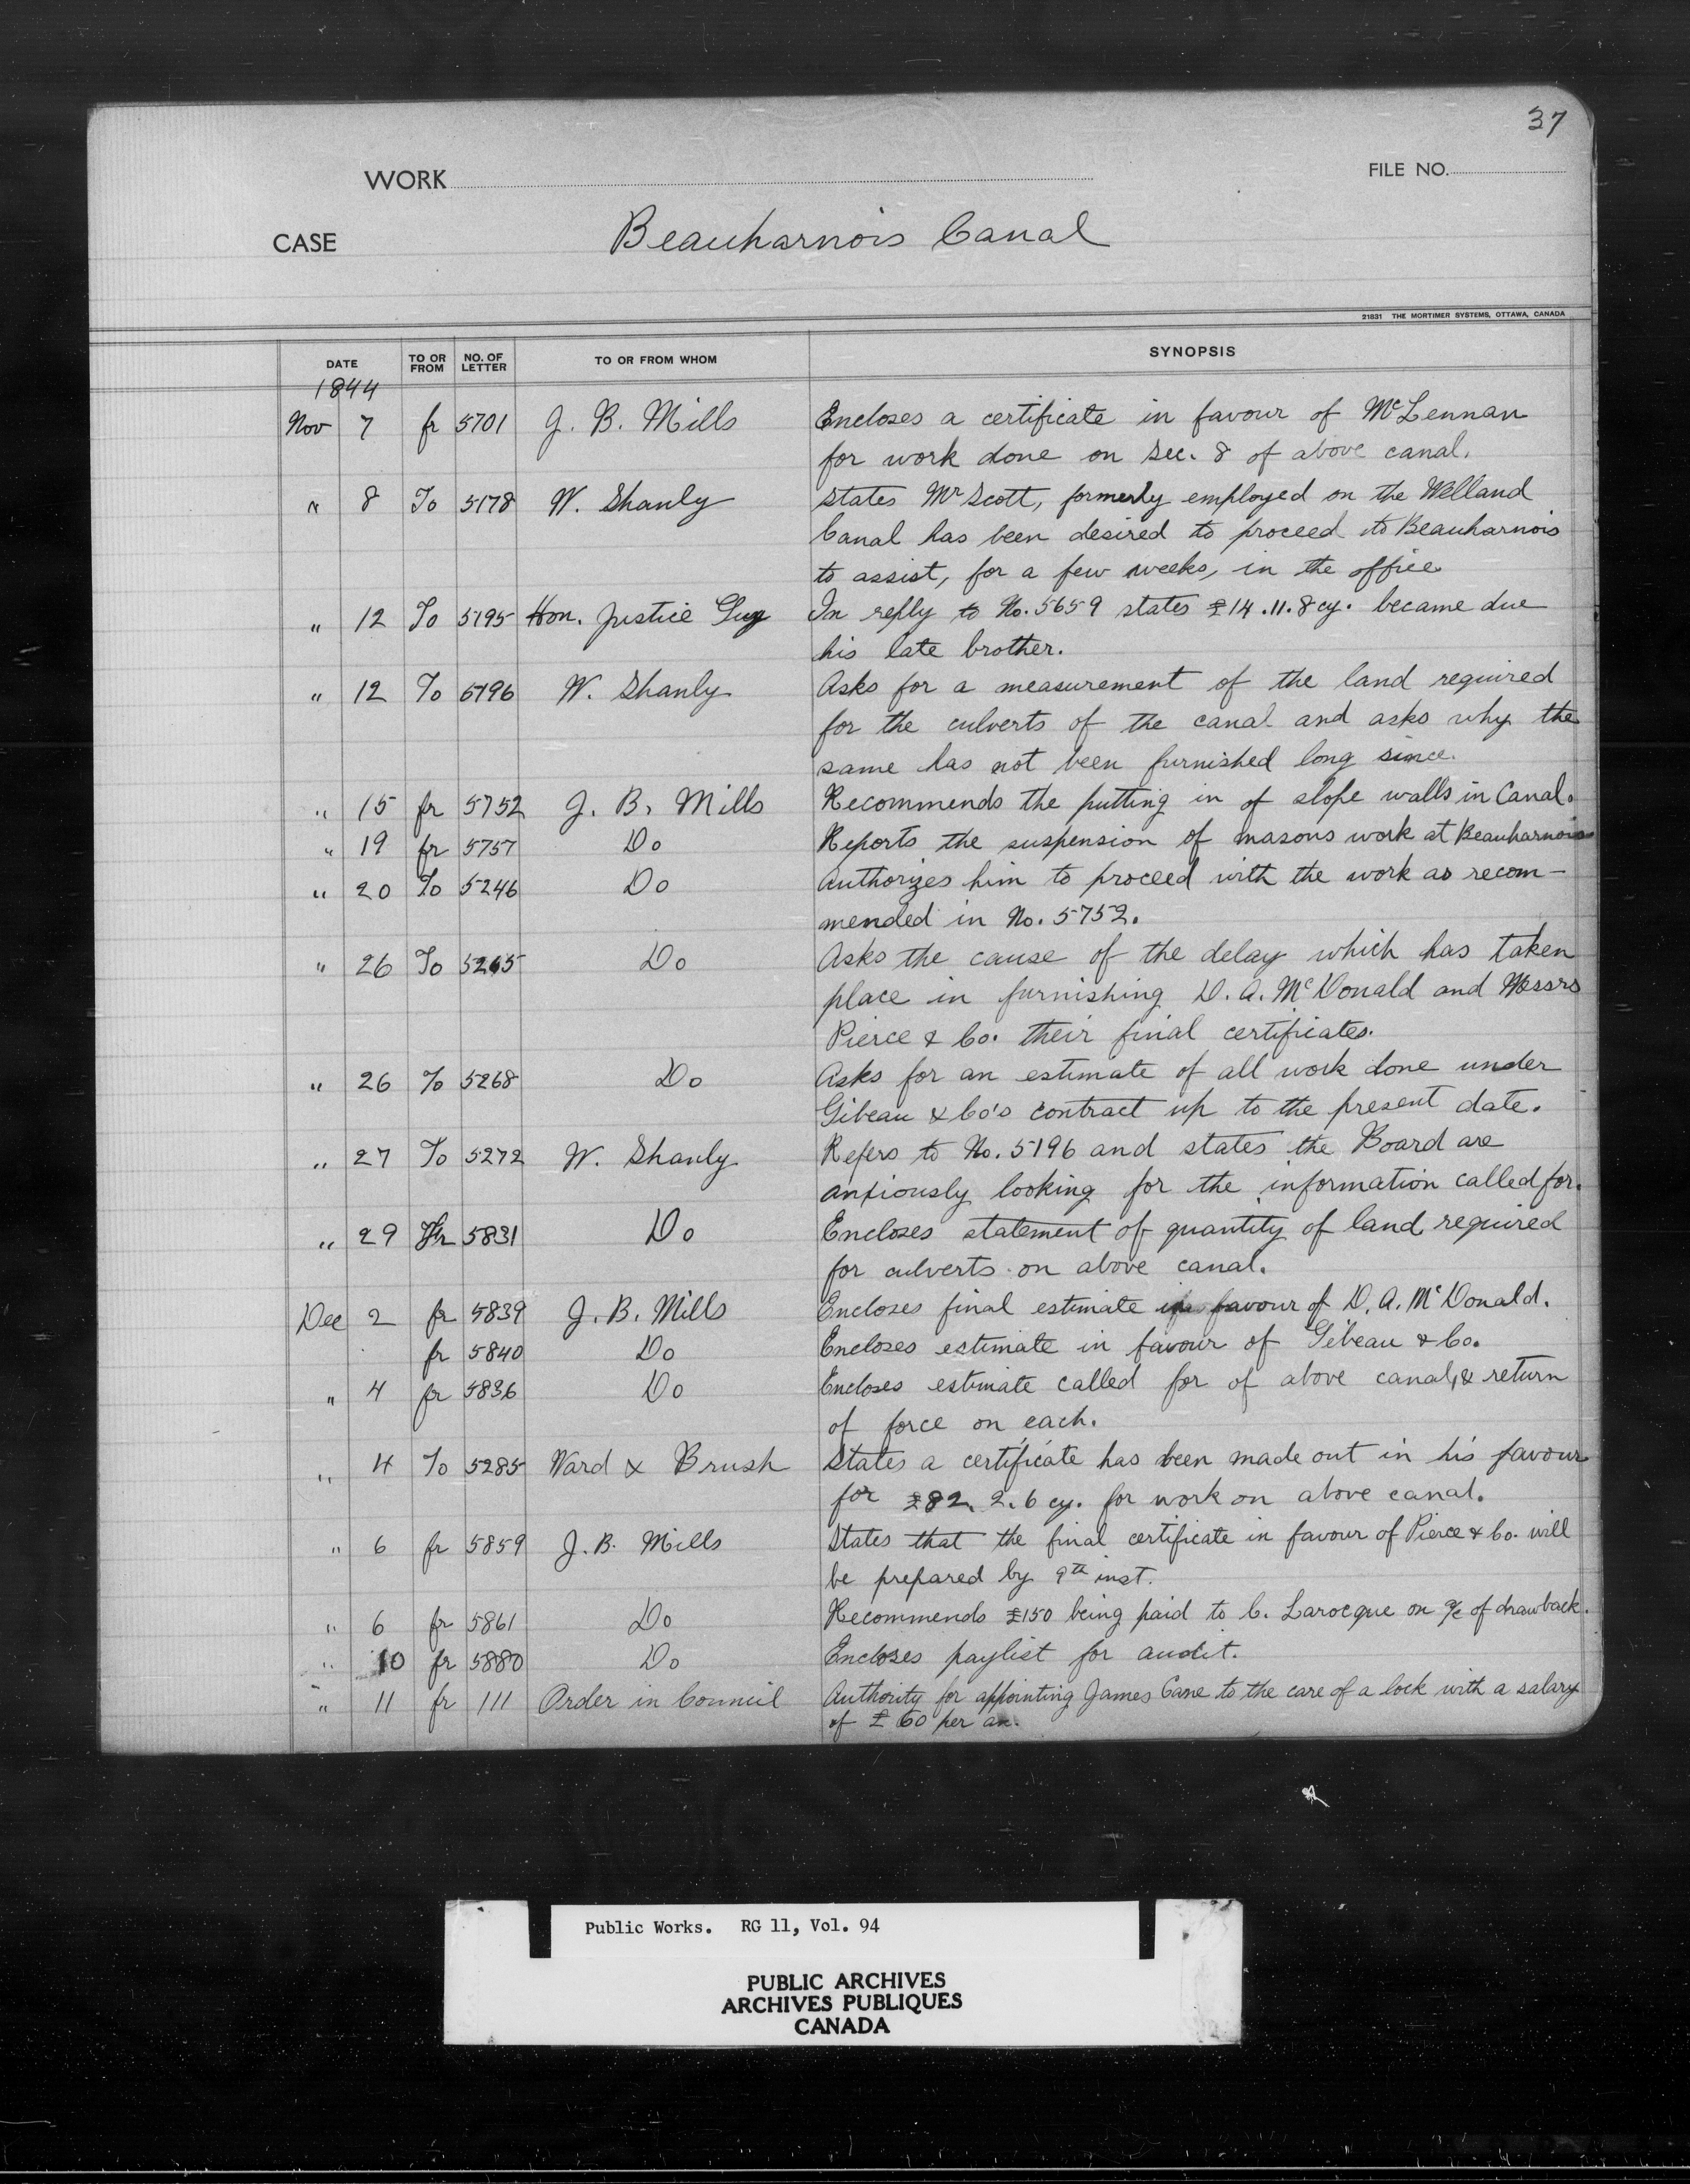 37
WORK
FILE NO.
CASE Beauharnois Canal
21831 THE MORTIMER SYSTEMS, OTTAWA, CANADA
DATE TO OR FROM NO. OF LETTER TO OR FROM WHOM SYNOPSIS
1844
Nov 7 fr 5701 J. B. Mills Encloses a certificate in favour of McLennan
for work done on Sec. 8 of above canal.
" 8 To 5178 W. Shanly States Mr Scott, formerly employed on the Welland
Canal has been desired to proceed to Beauharnois
to assist, for a few weeks, in the office
" 12 To 5195 Hon. Justice Guy In reply to No. 5659 states £14.11.8 cy. became due
his late brother.
" 12 To 5196 W. Shanly Asks for a measurement of the land required
for the culverts of the canal and asks why the
same has not been furnished long since.
" 15 fr 5752 J. B. Mills Recommends the putting in of slope walls in Canal.
" 19 fr 5757 Do Reports the suspension of masons work at Beauharnois
" 20 To 5246 Do Authorizes him to proceed with the work as recom-
mended in No. 5752.
" 26 To 5265 Do Asks the cause of the delay which has taken
place in furnishing D. A. McDonald and Messrs
Pierce & Co. their final certificates.
" 26 To 5268 Do Asks for an estimate of all work done under
Gibeau & Co's contract up to the present date.
" 27 To 5272 W. Shanly Refers to No. 5196 and states the Board are
anxiously looking for the information called for.
" 29 fr 5831 Do Encloses statement of quantity of land required
for culverts on above canal.
Dec 2 fr 5839 J. B. Mills Encloses final estimate in favour of D. A. McDonald.
fr 5840 Do Encloses estimate in favour of Gibeau & Co.
" 4 fr 5836 Do Encloses estimate called for of above canal, & return
of force on each.
" 4 To 5285 Ward & Brush States a certificate has been made out in his favour
for £82. 2. 6 cy. for work on above canal.
" 6 fr 5859 J. B. Mills States that the final certificate in favour of Pierce & Co. will
be prepared by 9th inst.
" 6 fr 5861 Do Recommends £150 being paid to C. Larocque on a/c of drawback.
" 10 fr 5880 Do Encloses paylist for audit.
" 11 fr 111 Order in Council Authority for appointing James Cane to the care of a lock with a salary
of £60 per an.
Public Works. RG 11, Vol. 94
PUBLIC ARCHIVES
ARCHIVES PUBLIQUES
CANADA